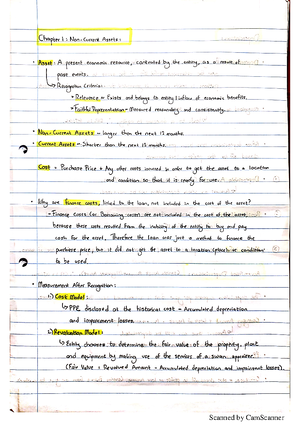 Chapter 1: Non-Current Assets:
• Asset: A present economic resource, controlled by the entity, as a result of
past events.
↳ Recognition Criteria:
• Relevance - Exists and belongs to entity & Inflow of economic benefits.
• Faithful Representation - Measured reasonably and consistently.
• Non-Current Assets - longer than the next 12 months.
• Current Assets - Shorter than the next 12 months.
Cost = Purchase Price + Any other costs incurred in order to get the asset to a location
and condition so that it is ready for use.
• Why are finance costs, linked to the loan, not included in the cost of the asset?
- Finance costs (or Borrowing costs) are not included in the cost of the asset,
because these costs resulted from the inability of the entity to buy and pay
cash for the asset. Therefore the loan was just a method to finance the
purchase price, but it did not get the asset to a location (place) or condition
to be used.
• Measurement After Recognition:
1) Cost Model:
↳ PPE disclosed at the historical cost - Accumulated depreciation
and impairment losses.
2) Revaluation Model:
↳ Entity chooses to determine the fair value of the property, plant
and equipment by making use of the services of a sworn appraiser.
(Fair Value = Revalued Amount - Accumulated depreciation and impairment losses).
Scanned by CamScanner